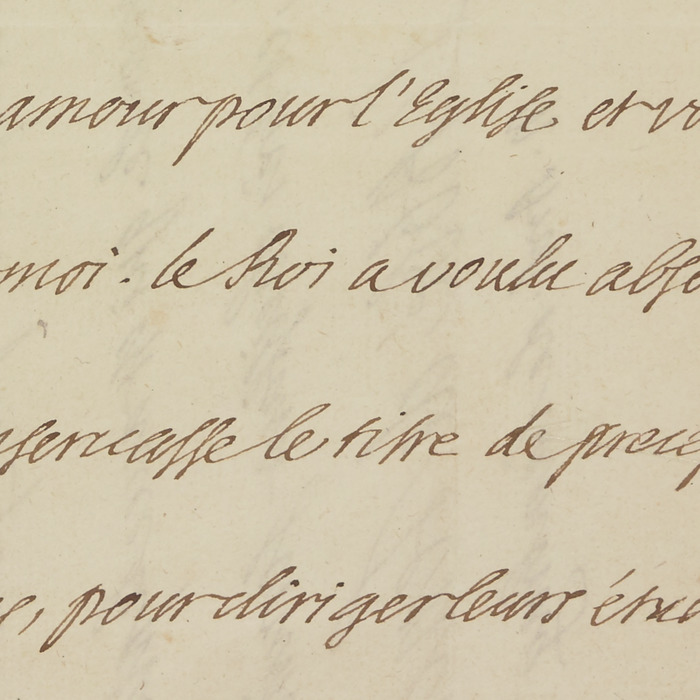 amour pour l'Eglise et vo
moi. le Roi a voulu abso
nservasse le titre de precep
pour diriger leurs étud